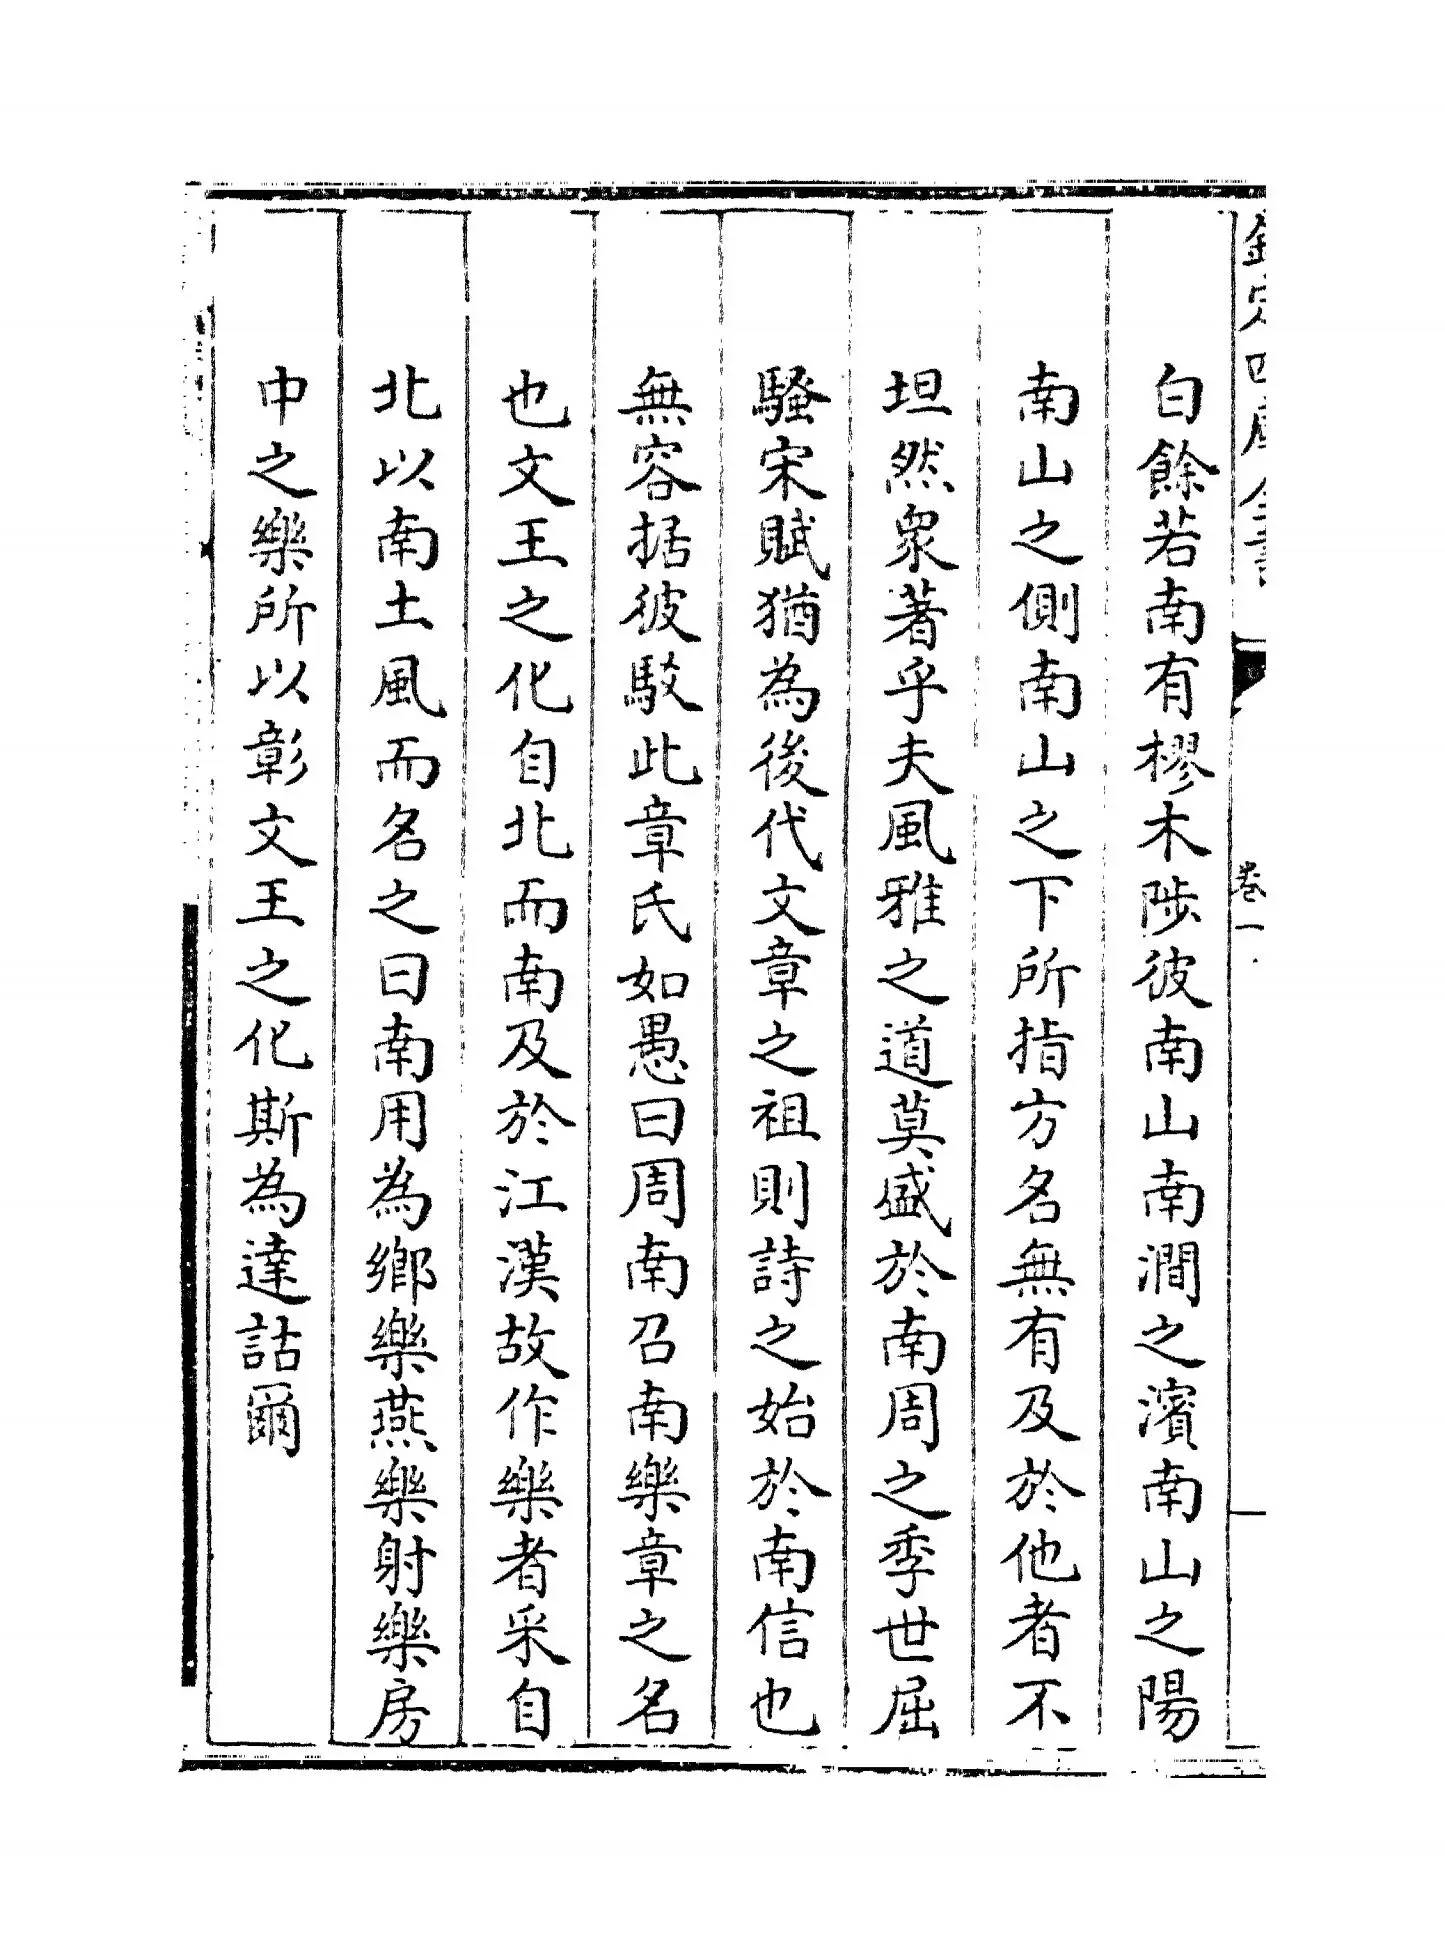 欽定四庫全書
卷一
白餘若南有樛木陟彼南山南澗之濱南山之陽
南山之側南山之下所指方名無有及於他者不
坦然衆著乎夫風雅之道莫盛於南周之季世屈
騷宋賦猶為後代文章之祖則詩之始於南信也
無容据彼駁此章氏如愚曰周南召南樂章之名
也文王之化自北而南及於江漢故作樂者采自
北以南土風而名之曰南用為鄉樂燕樂射樂房
中之樂所以彰文王之化斯為達詁爾